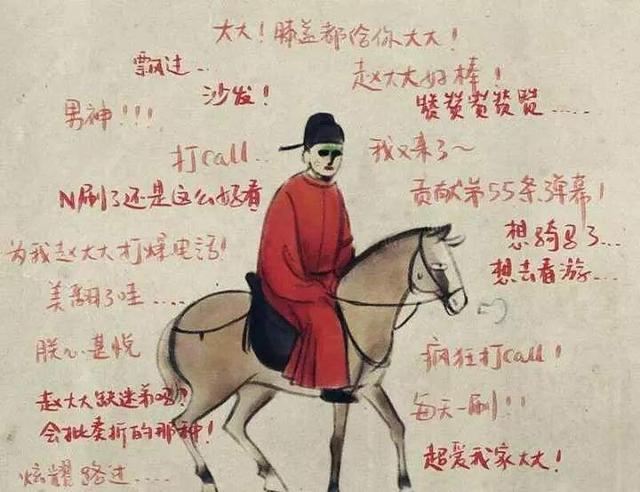 太太！膝盖都给你太太！
飘过...
赵太太好棒！
沙发！
赞赞赞赞赞......
男神!!!
打call..
我又来了~
N刷了还是这么好看
贡献第55条弹幕！
想骑马了...
为我赵太太打爆电话！
想去看游...
美翻了哇.....
朕心甚悦
疯狂打call！
赵太太缺迷弟吗？
会批奏折的那种！
每天一刷!!
超爱我家太太！
炫耀路过.....